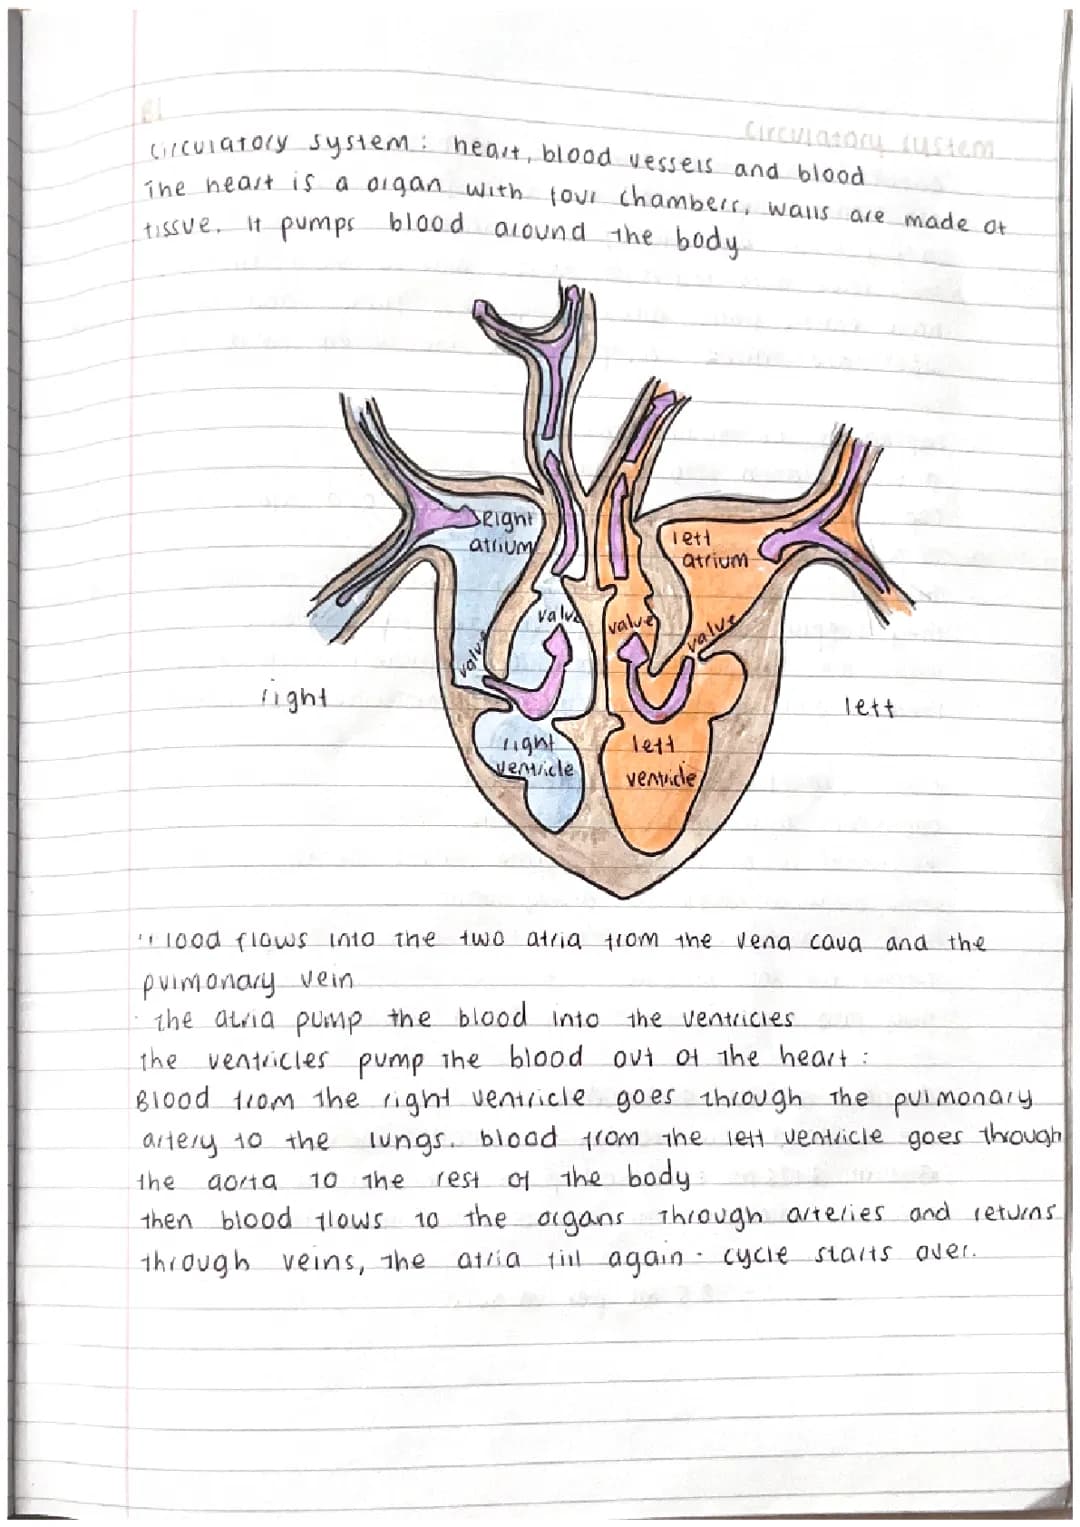 circulatory system
circulatory system: heart, blood vessels and blood
The heart is a organ with four chambers, walls are made of
tissue. It pumps blood around the body
Right
atrium
left
atrium
valve
valve
valve
valve
right
left
right
ventricle
left
ventricle
Blood flows into the two atria from the vena cava and the
pulmonary vein
· the atria pump the blood into the ventricles
the ventricles pump the blood out of the heart :
Blood from the right ventricle goes through the pulmonary
artery to the lungs. blood from the left ventricle goes through
the aorta to the rest of the body
then blood flows to the organs through arteries and returns
through veins, the atria fill again · cycle starts over.